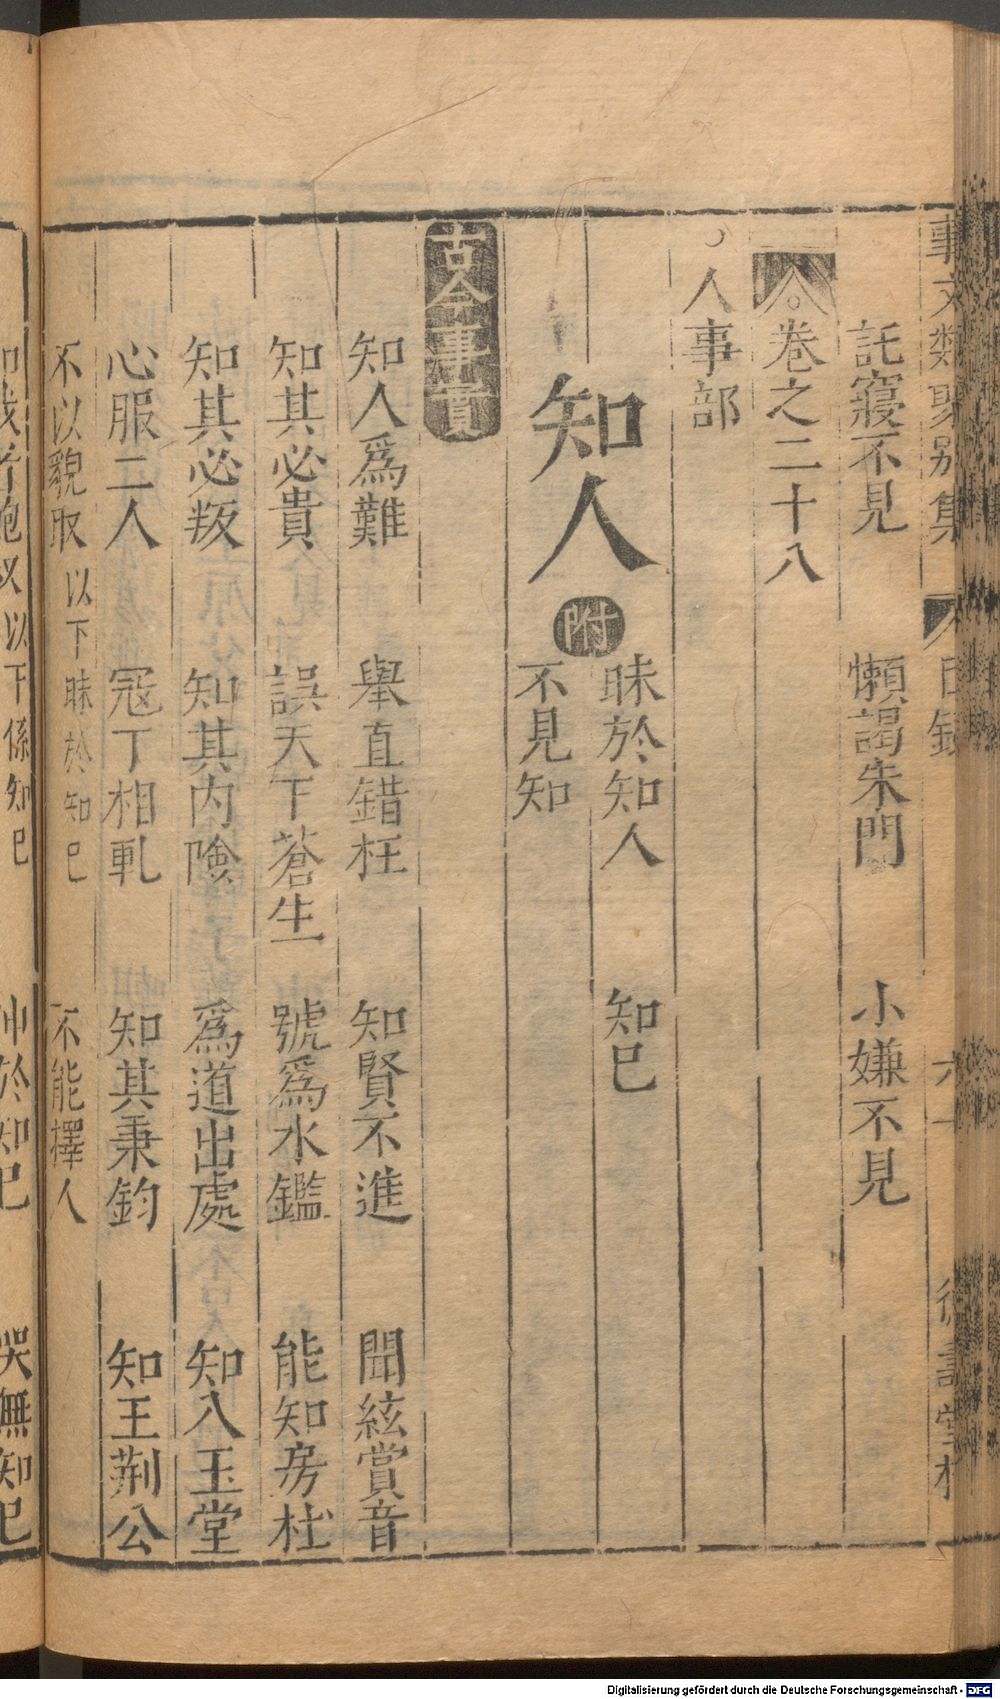 事文類聚別集 目錄 六十
託寢不見 懶謁朱門 小嫌不見
卷之二十八
人事部
知人 附
昧於知人 知己
不見知
古今事實
知人爲難 舉直錯枉 知賢不進 聞絃賞音
知其必貴 誤天下蒼生 號爲水鑑 能知房杜
知其必叛 知其內險 爲道出處 知入玉堂
心服二人 冦丁相軋 知其秉鈞 知王荆公
不以貌取 以下昧於知已 不能擇人
以下係知已 哭無知已
Digitalisierung gefördert durch die Deutsche Forschungsgemeinschaft - DFG